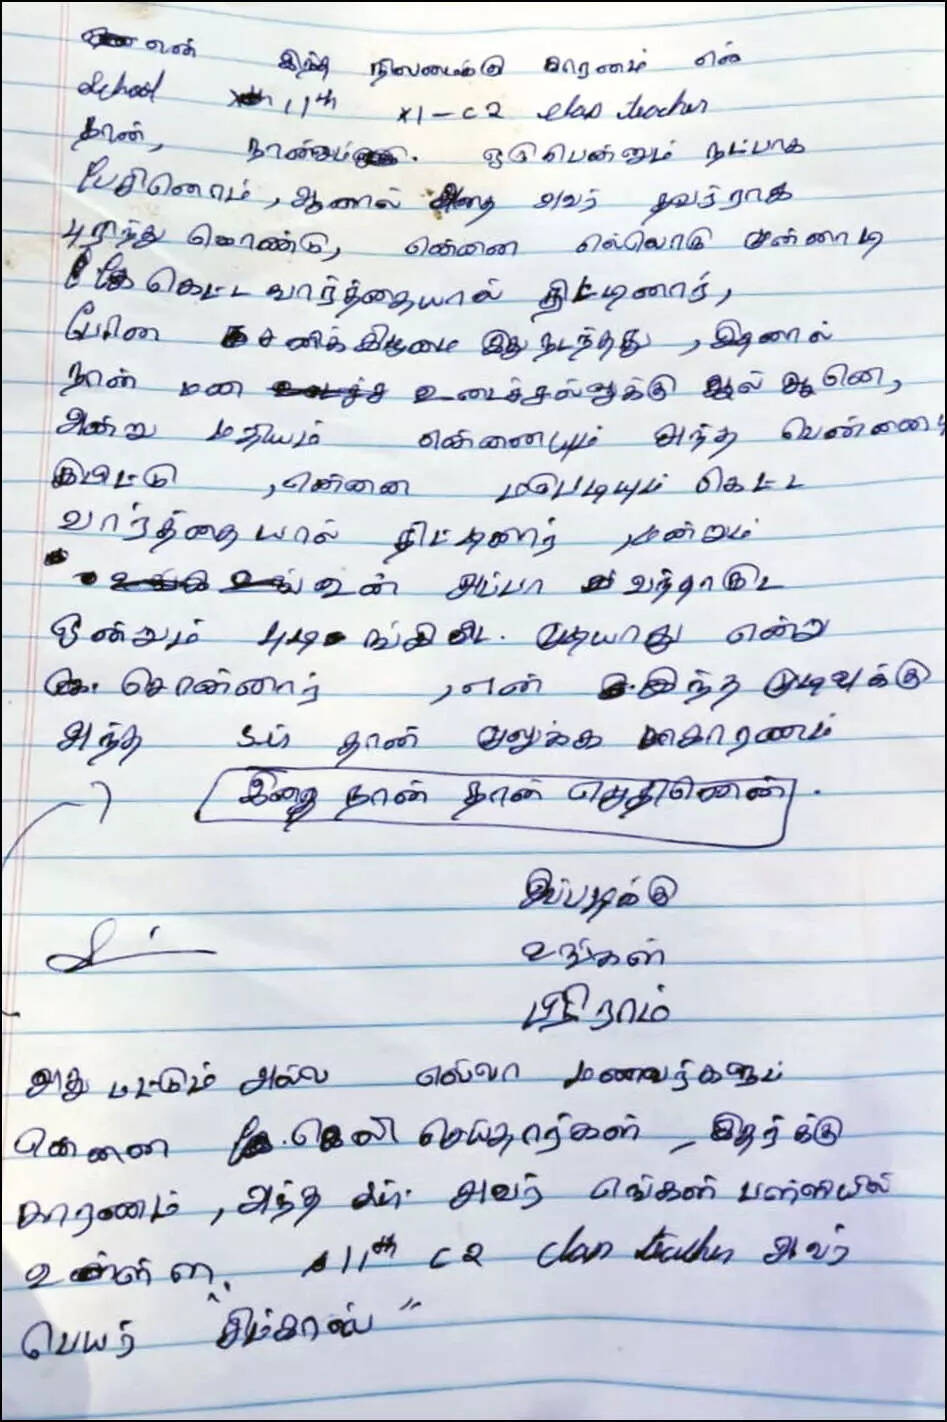 என் இந்த நிலமைக்கு காரனம் என்
School 11th XI-C2 class teacher
தான், நானும் ஒரு பென்னும் நட்பாக
பேசினொம், ஆனால் அதை அவர் தவர்ராக
புறிந்து கொண்டு, என்னை எல்லொரு முன்னாடி
கெட்ட வார்த்தையால் திட்டினார்,
போன சனிக்கிழமை இது நடந்தது, இதனால்
நான் மன உடைச்சலுக்கு ஆல் ஆனென,
அன்று மதியம் என்னையும் அந்த பென்னை
, என்னை மபெடியும் கெட்ட
வார்த்தையால் திட்டினார் மன்றும்
உன் அப்பா வந்தாகூட
ஒன்றும் புடிங்கிகூட முடியாது என்று
சொன்னார் , என் இந்த முடிவுக்கு
அந்த தான் முலுக்க காரணம்
இதை நான் தான் எழுதினென்.
இப்படிக்கு
உங்கள்
அது மட்டும் அல்ல எல்லா மணவர்களும்
என்னை கெலி செய்தார்கள், இதர்க்கு
காரணம், அந்த சார். அவர் எங்கள் பள்ளியில்
உள்ள. 11th C2 class teacher அவர்
பெயர்